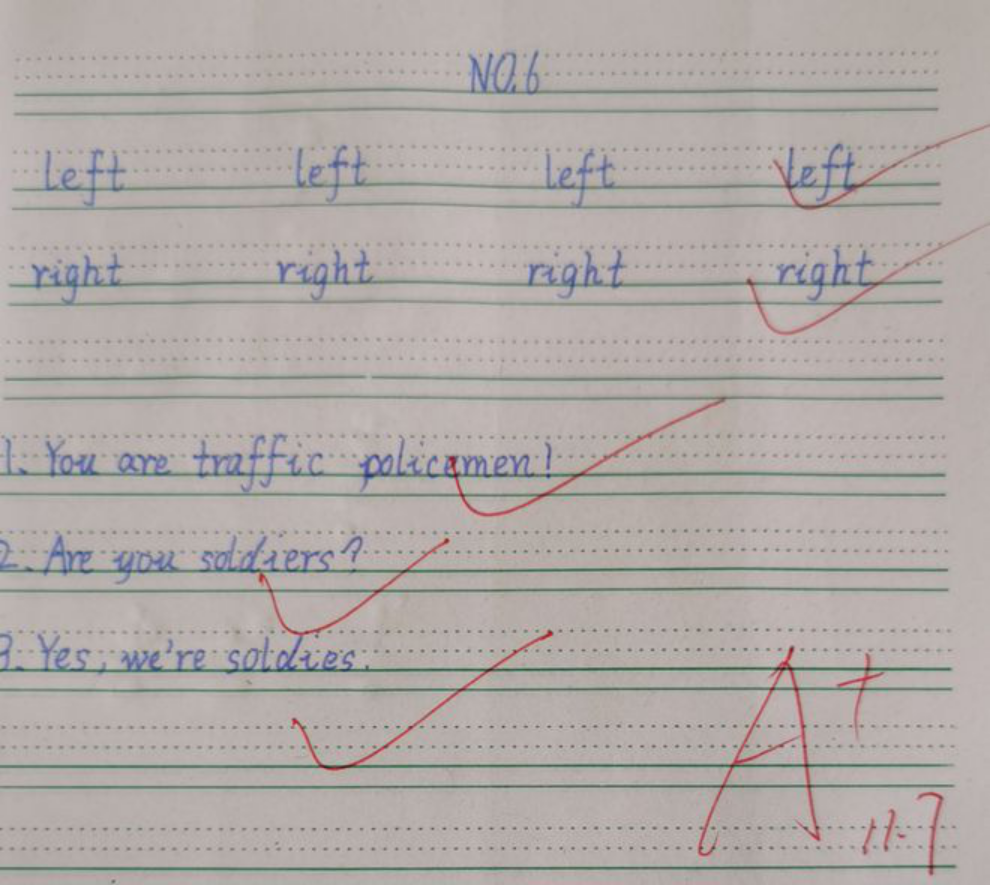 NO.6
left left left left
right right right right
1. You are traffic policemen!
2. Are you soldiers?
3. Yes, we're soldies.
A+
11.7